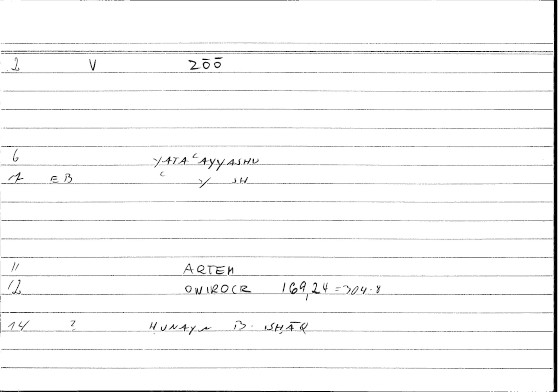 2 V 2ōō
6 YATAʿAYYASHU
7 EB ʿ Y SH
11 ARTEM
12 ONIROCR 169,24 = 304-8
14 ? HUNAYN B. ISḤĀQ